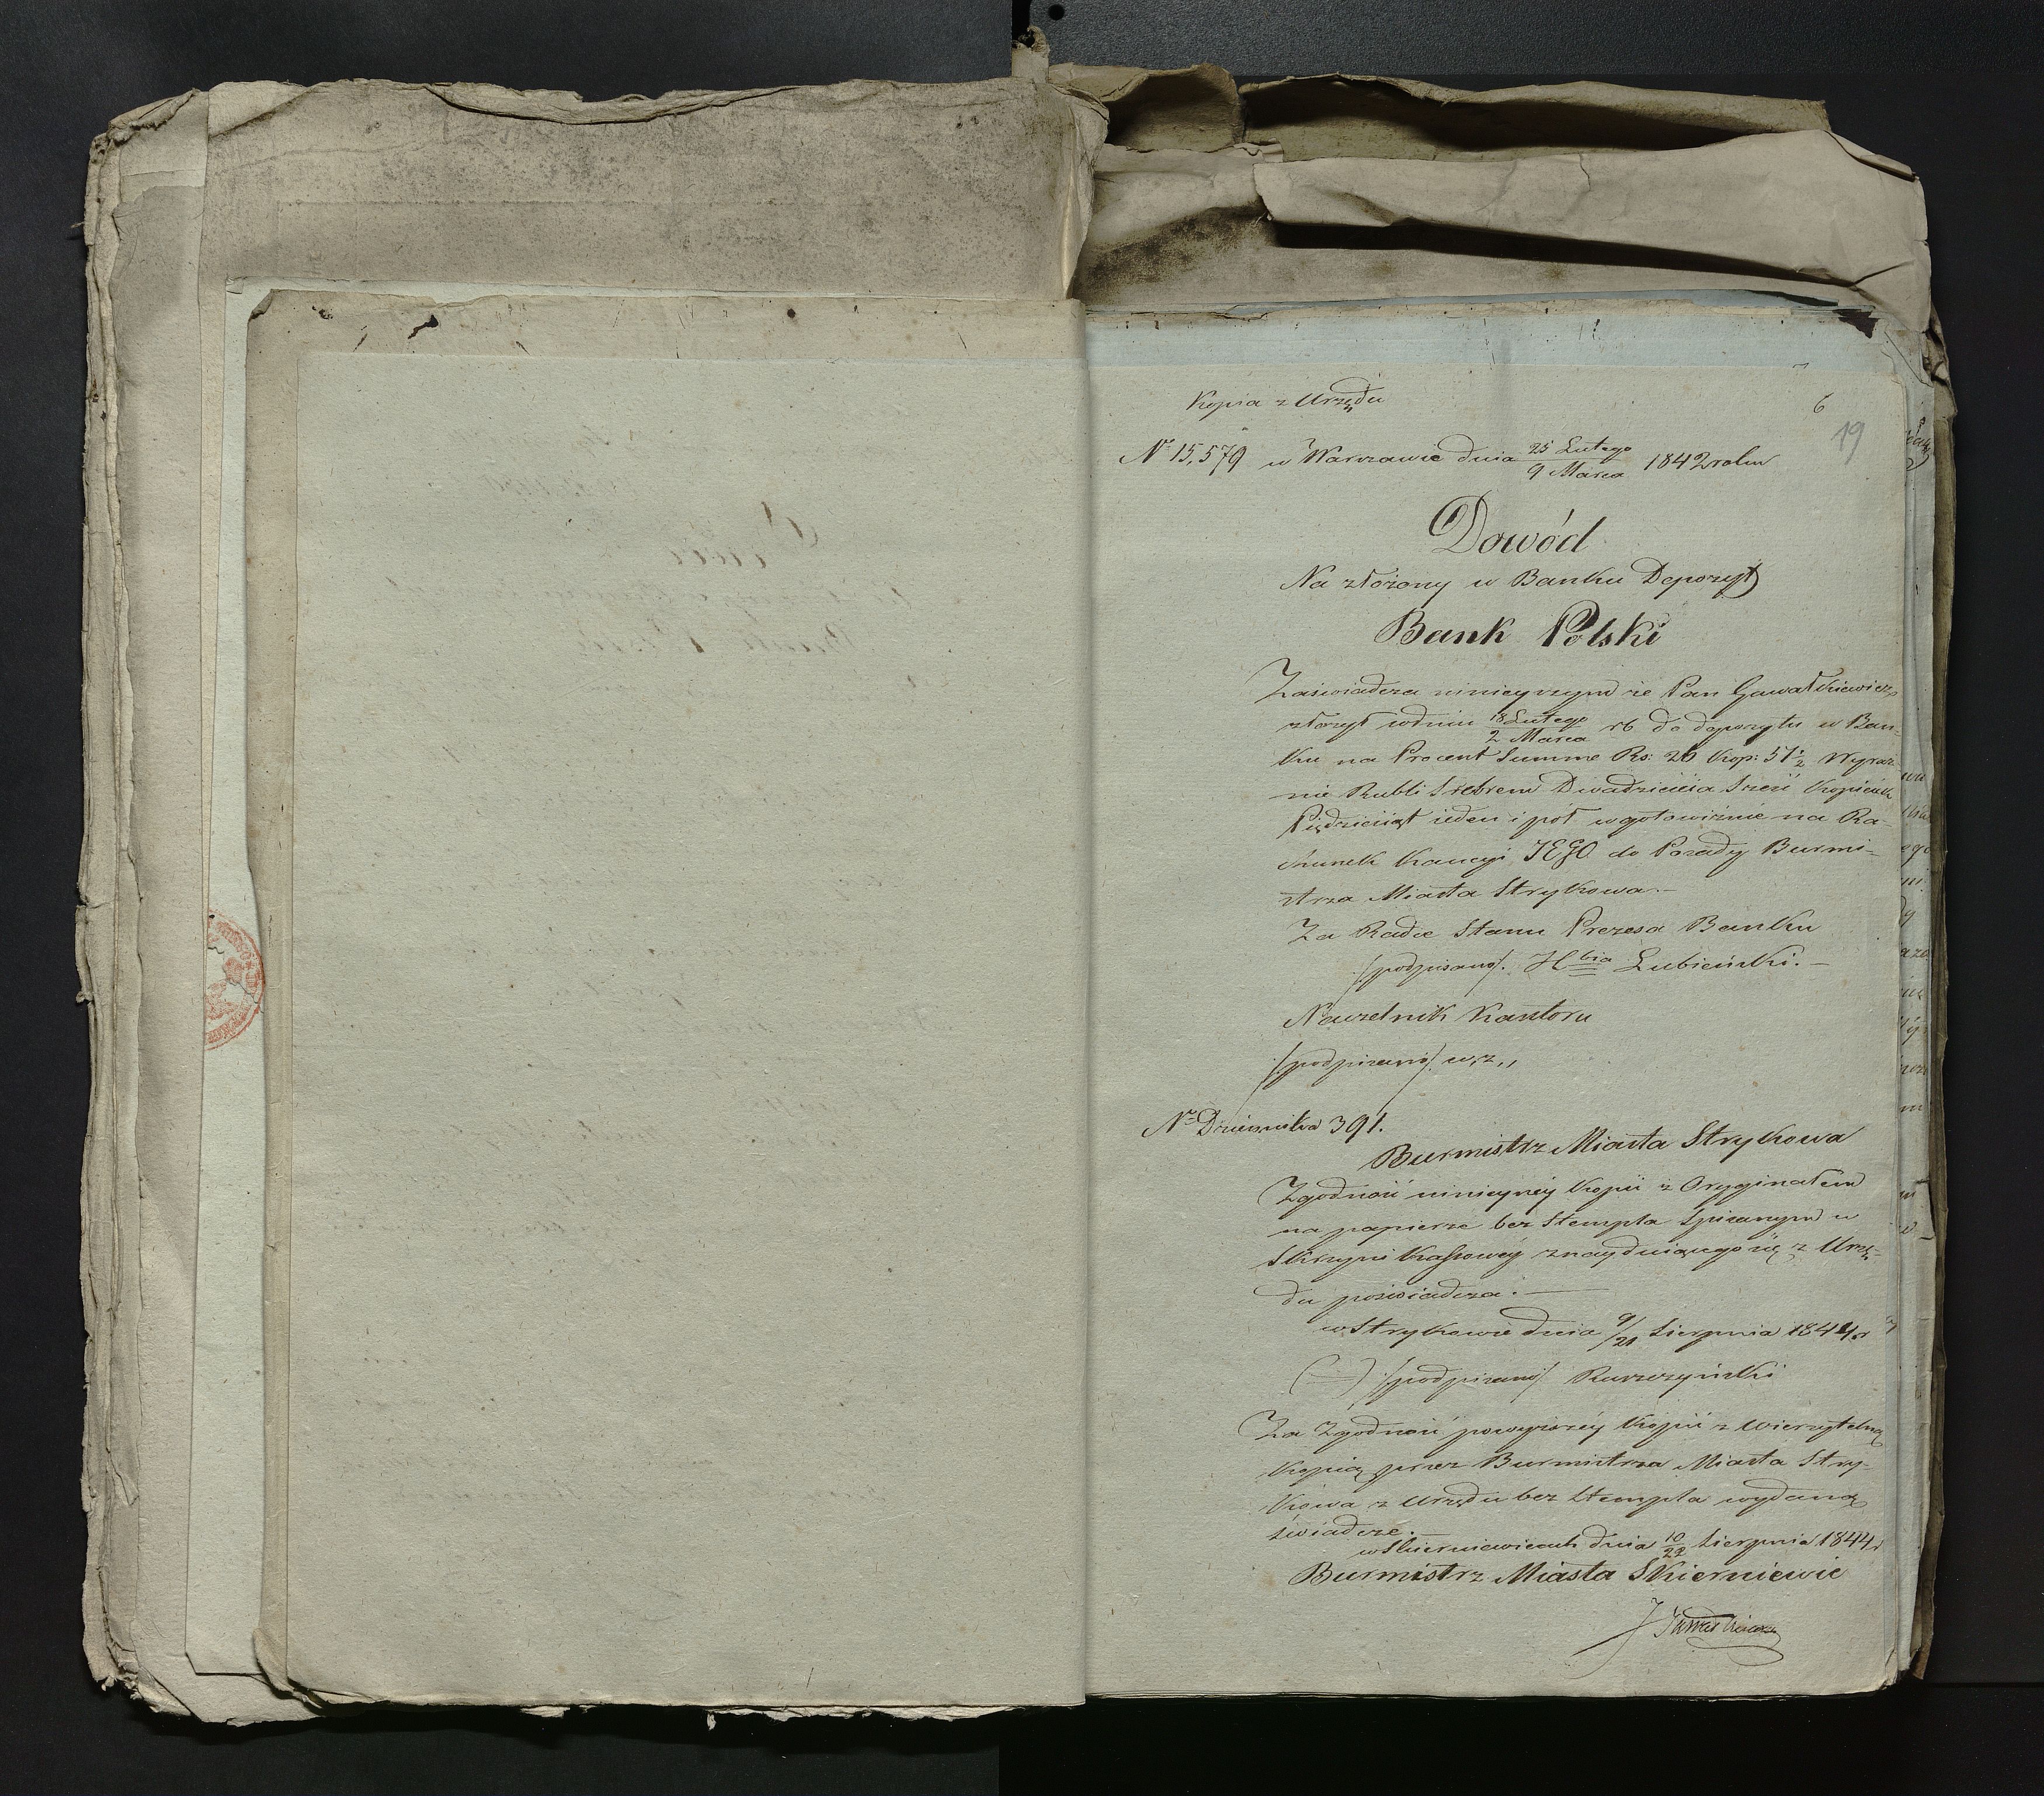 Kopia z Urzędu
6
19
Nr 15,579 w Warszawie dnia 25 Lutego / 9 Marca 1842 roku
Dowód
Na złożony w Banku Depozyt
Bank Polski
Zaświadcza ninieyszym że Pan Gawałkiewicz
złożył w dniu 18 Lutego / 2 Marca rb do depozytu w Ban-
ku na Procent Summę Rs: 26 Kop: 51½ Wyraź-
nie Rubli Srebrem Dwadzieścia Sześć Kopieiek
Pięćdziesiąt ieden i poł w gotowiźnie na Ra-
chunek Kaucyi JEGO do Posady Burmi-
strza Miasta Strykowa.-
Za Radcę Stanu Prezesa Banku
/podpisano/. Hbia Łubieński.-
Naczelnik Kantoru
/podpisano/ w. z.,,
Nr Dziennika 391.
Burmistrz Miasta Strykowa
Zgodność ninieyszéy Kopii z Oryginałem
na papierze bez Stempla Spisanym w
Skrzyni Kassowéy znayduiącego się z Urzę-
du poświadcza.-
w Strykowie dnia 9/21 Sierpnia 1844 r
(-) /podpisano/ Ruszczyński
Za Zgodność powyższéy Kopii z Wierzytelną
Kopią przez Burmistrza Miasta Stry-
kowa z Urzędu bez Stempla wydaną
świadczę.-
w Skierniewicach dnia 10/22 Sierpnia 1844 r
Burmistrz Miasta Skierniewic
J Gawałkiewicz